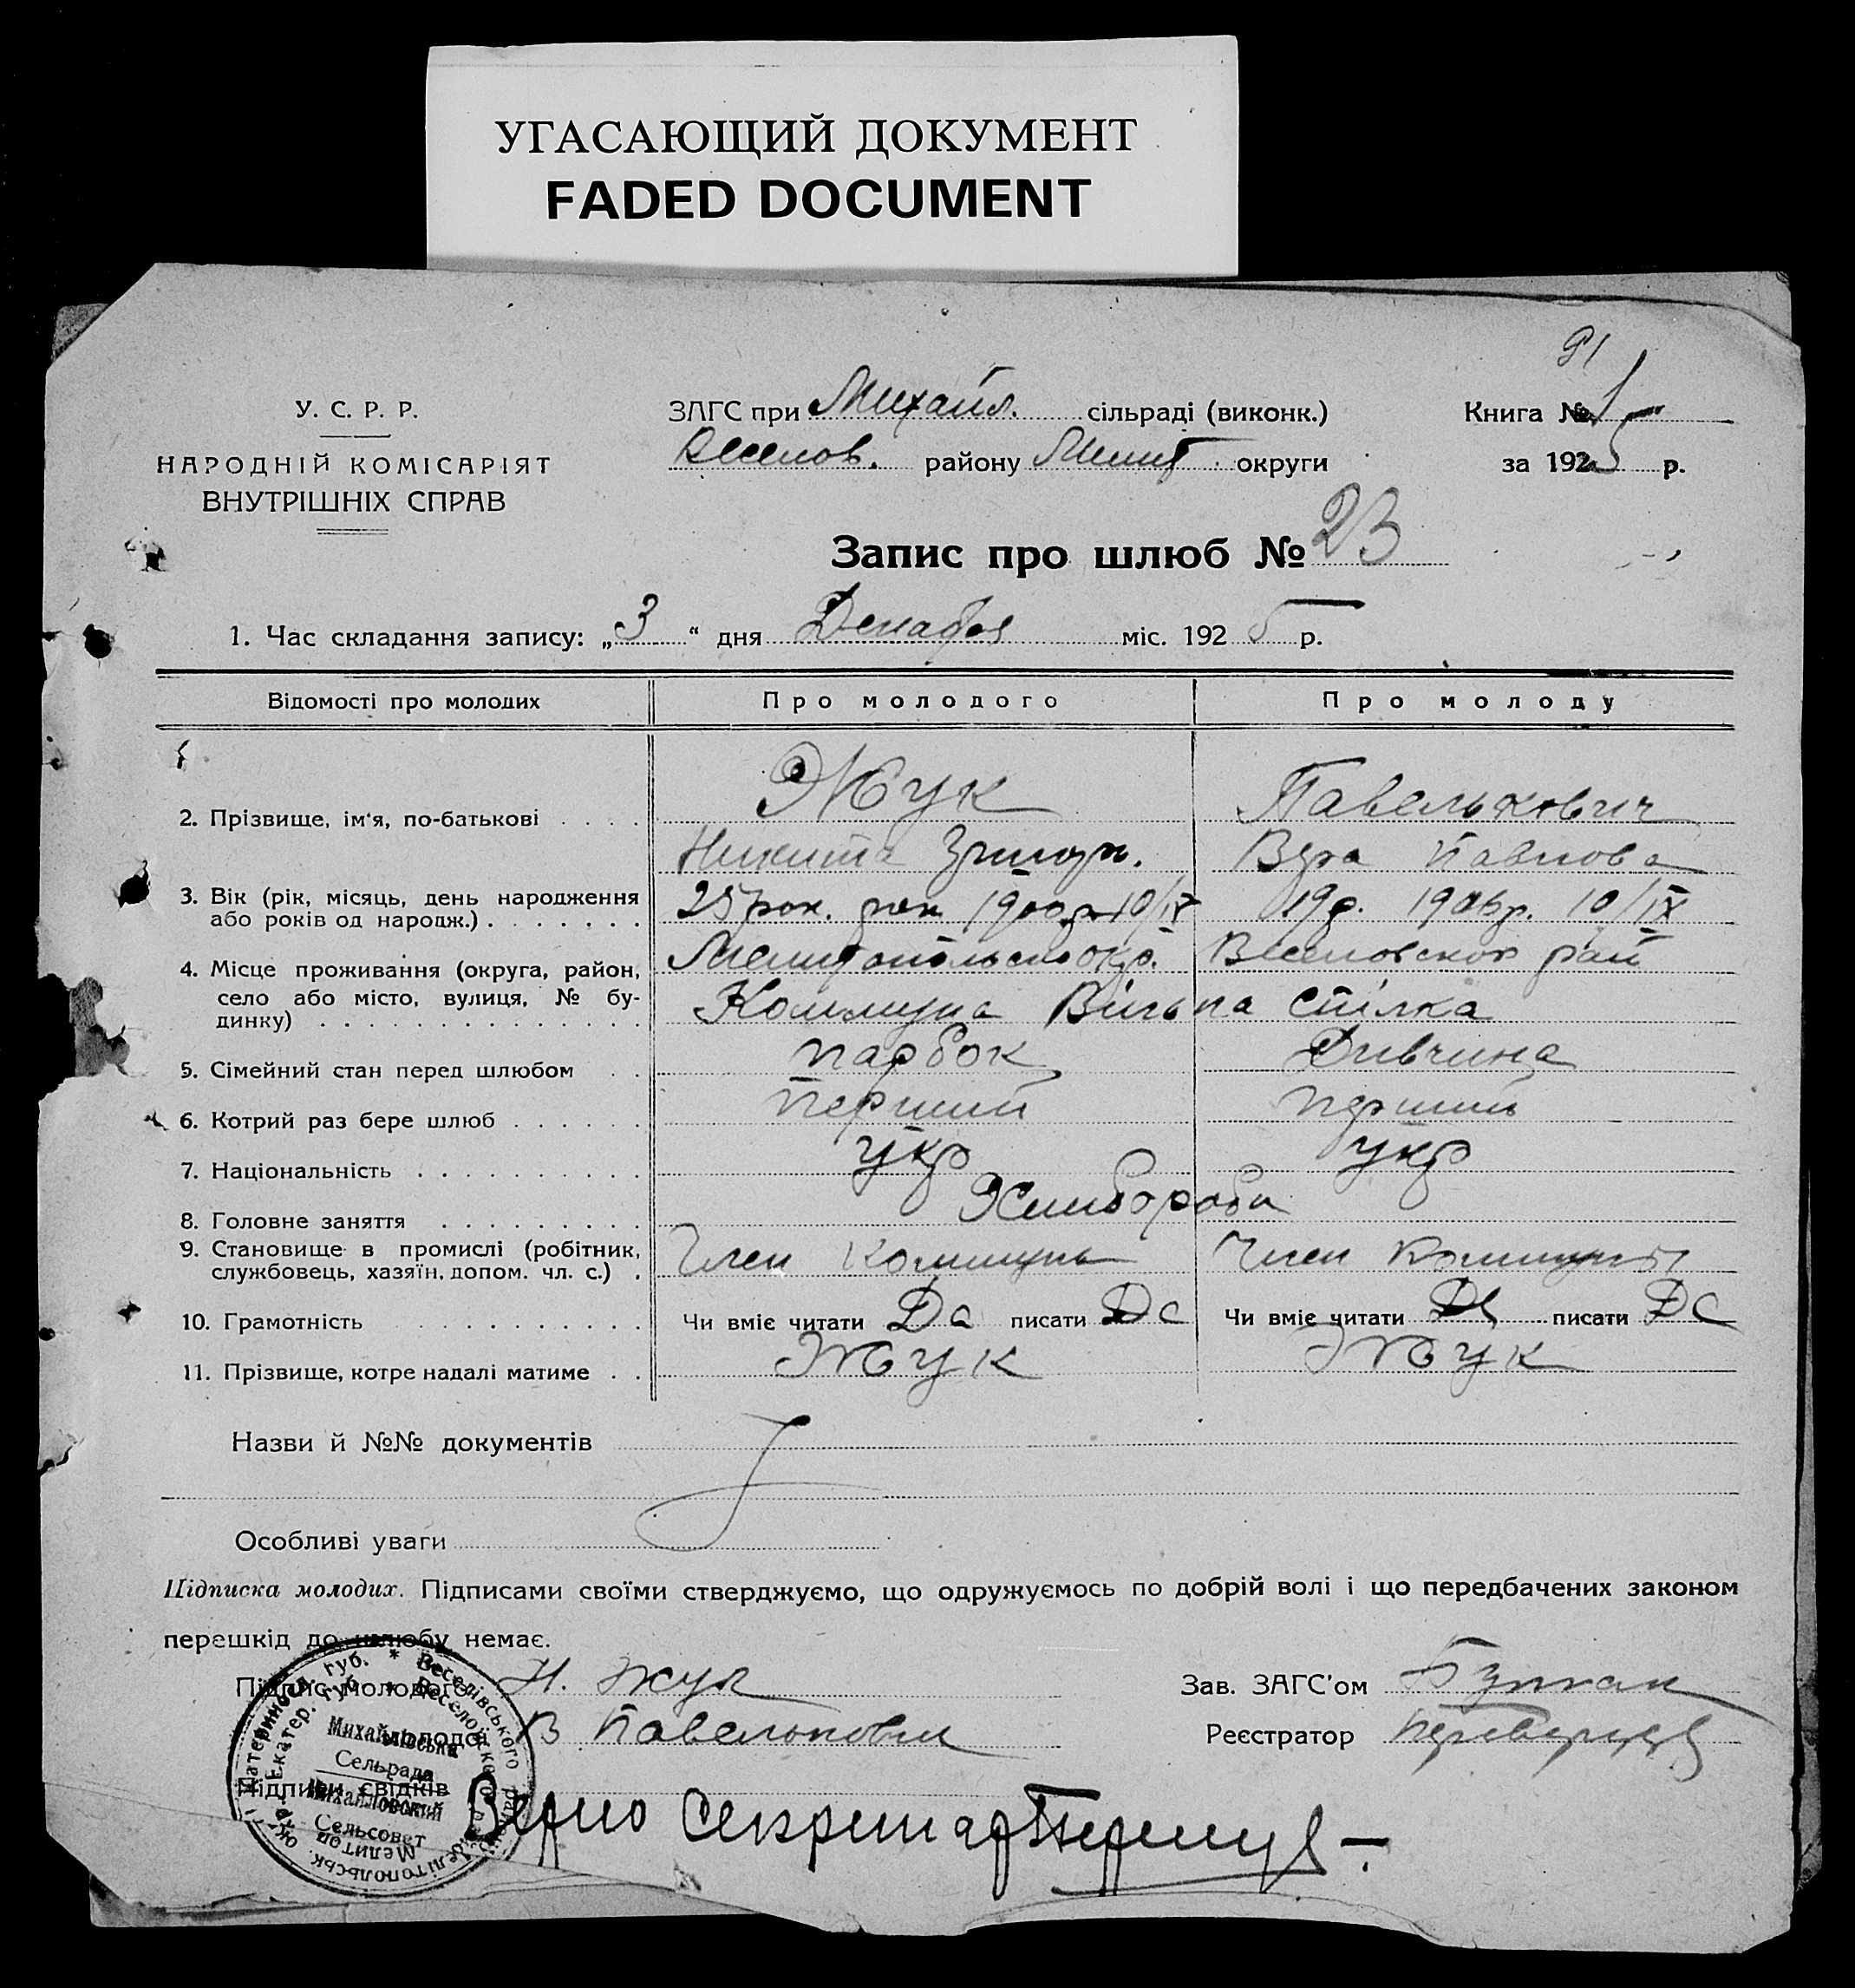 УГАСАЮЩИЙ ДОКУМЕНТ
FADED DOCUMENT
91
У. С. Р. Р.
НАРОДНІЙ КОМІСАРІЯТ
ВНУТРІШНІХ СПРАВ
ЗАГС при Михайл. сільраді (виконк.)
Веселов. району Мелит. округи
Книга № 1
за 1925 р.
Запис про шлюб № 23
1. Час складання запису: „3“ дня Декабря міс. 1925 р.
Відомості про молодих Про молодого Про молоду
2. Прізвище, ім'я, по-батькові . . . . Жук Павелькович
Никита Григор. Вера Павлова
3. Вік (рік, місяць, день народження або років од народж.) . . . . . . . 25 рок. рож 1900 р 10/IX 19 р. 1906 р. 10/IX
4. Місце проживання (округа, район, село або місто, вулиця, № будинку) . . . . . . . . . . . . . . Мелитопольско окр. Веселовского рай
Коммуна Вільна Спілка
5. Сімейний стан перед шлюбом . . парбок Дивчина
6. Котрий раз бере шлюб . . . . . . Перший Перший
7. Національність . . . . . . . . . . укр укр
8. Головне заняття . . . . . . . . . Хлибороби
9. Становище в промислі (робітник, службовець, хазяїн, допом. чл. с.) . Член Коммуны Член Коммуны
10. Грамотність . . . . . . . . . . . Чи вміє читати Да писати Да Чи вміє читати Да писати Да
11. Прізвище, котре надалі матиме . . Жук Жук
Назви й №№ документів
Особливі уваги
Підписка молодих. Підписами своїми стверджуємо, що одружуємось по добрій волі і що передбачених законом
перешкід до шлюбу немає.
Підпис молодого Н. Жук Зав. ЗАГС'ом
молодої В Павелькович Реєстратор
Підписи свідків
Верно Секретар
Михайлівська
Сельрада
Михайловский
Сельсовет